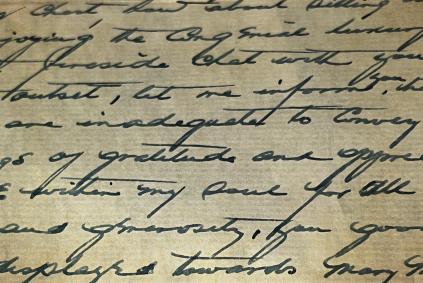 chest, how about sitting
enjoying the Congenial luxury
fireside chat with you
outset, let me inform you, the
are inadequate to Convey
of gratitude and appre
within my soul for all
and generosity, you good
displayed towards Mary